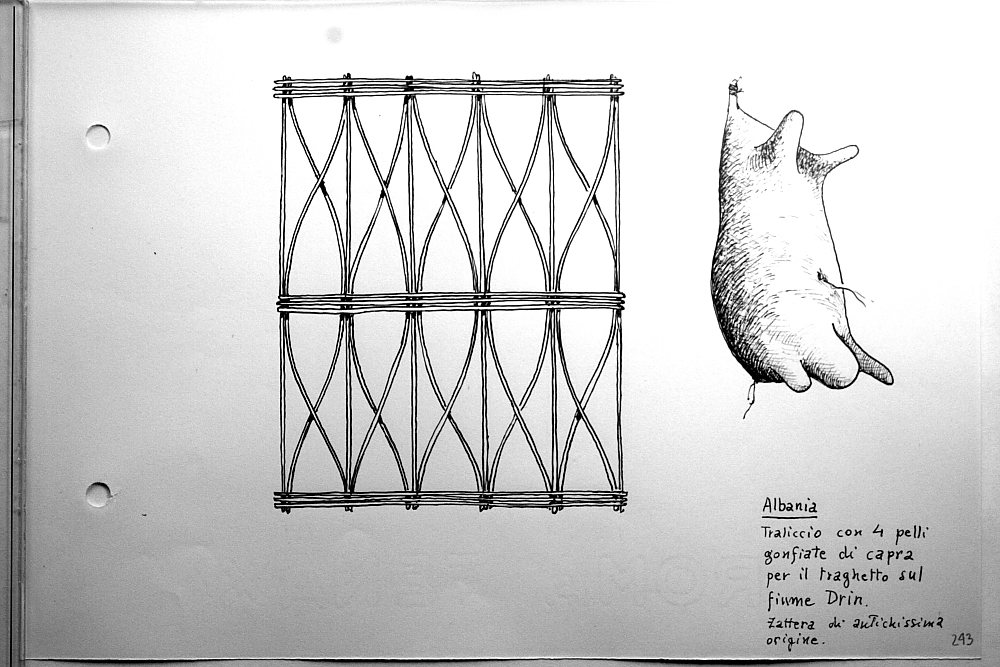 Albania
Traliccio con 4 pelli
gonfiate di capra
per il traghetto sul
fiume Drin.
Zattera di antichissima
origine.
243